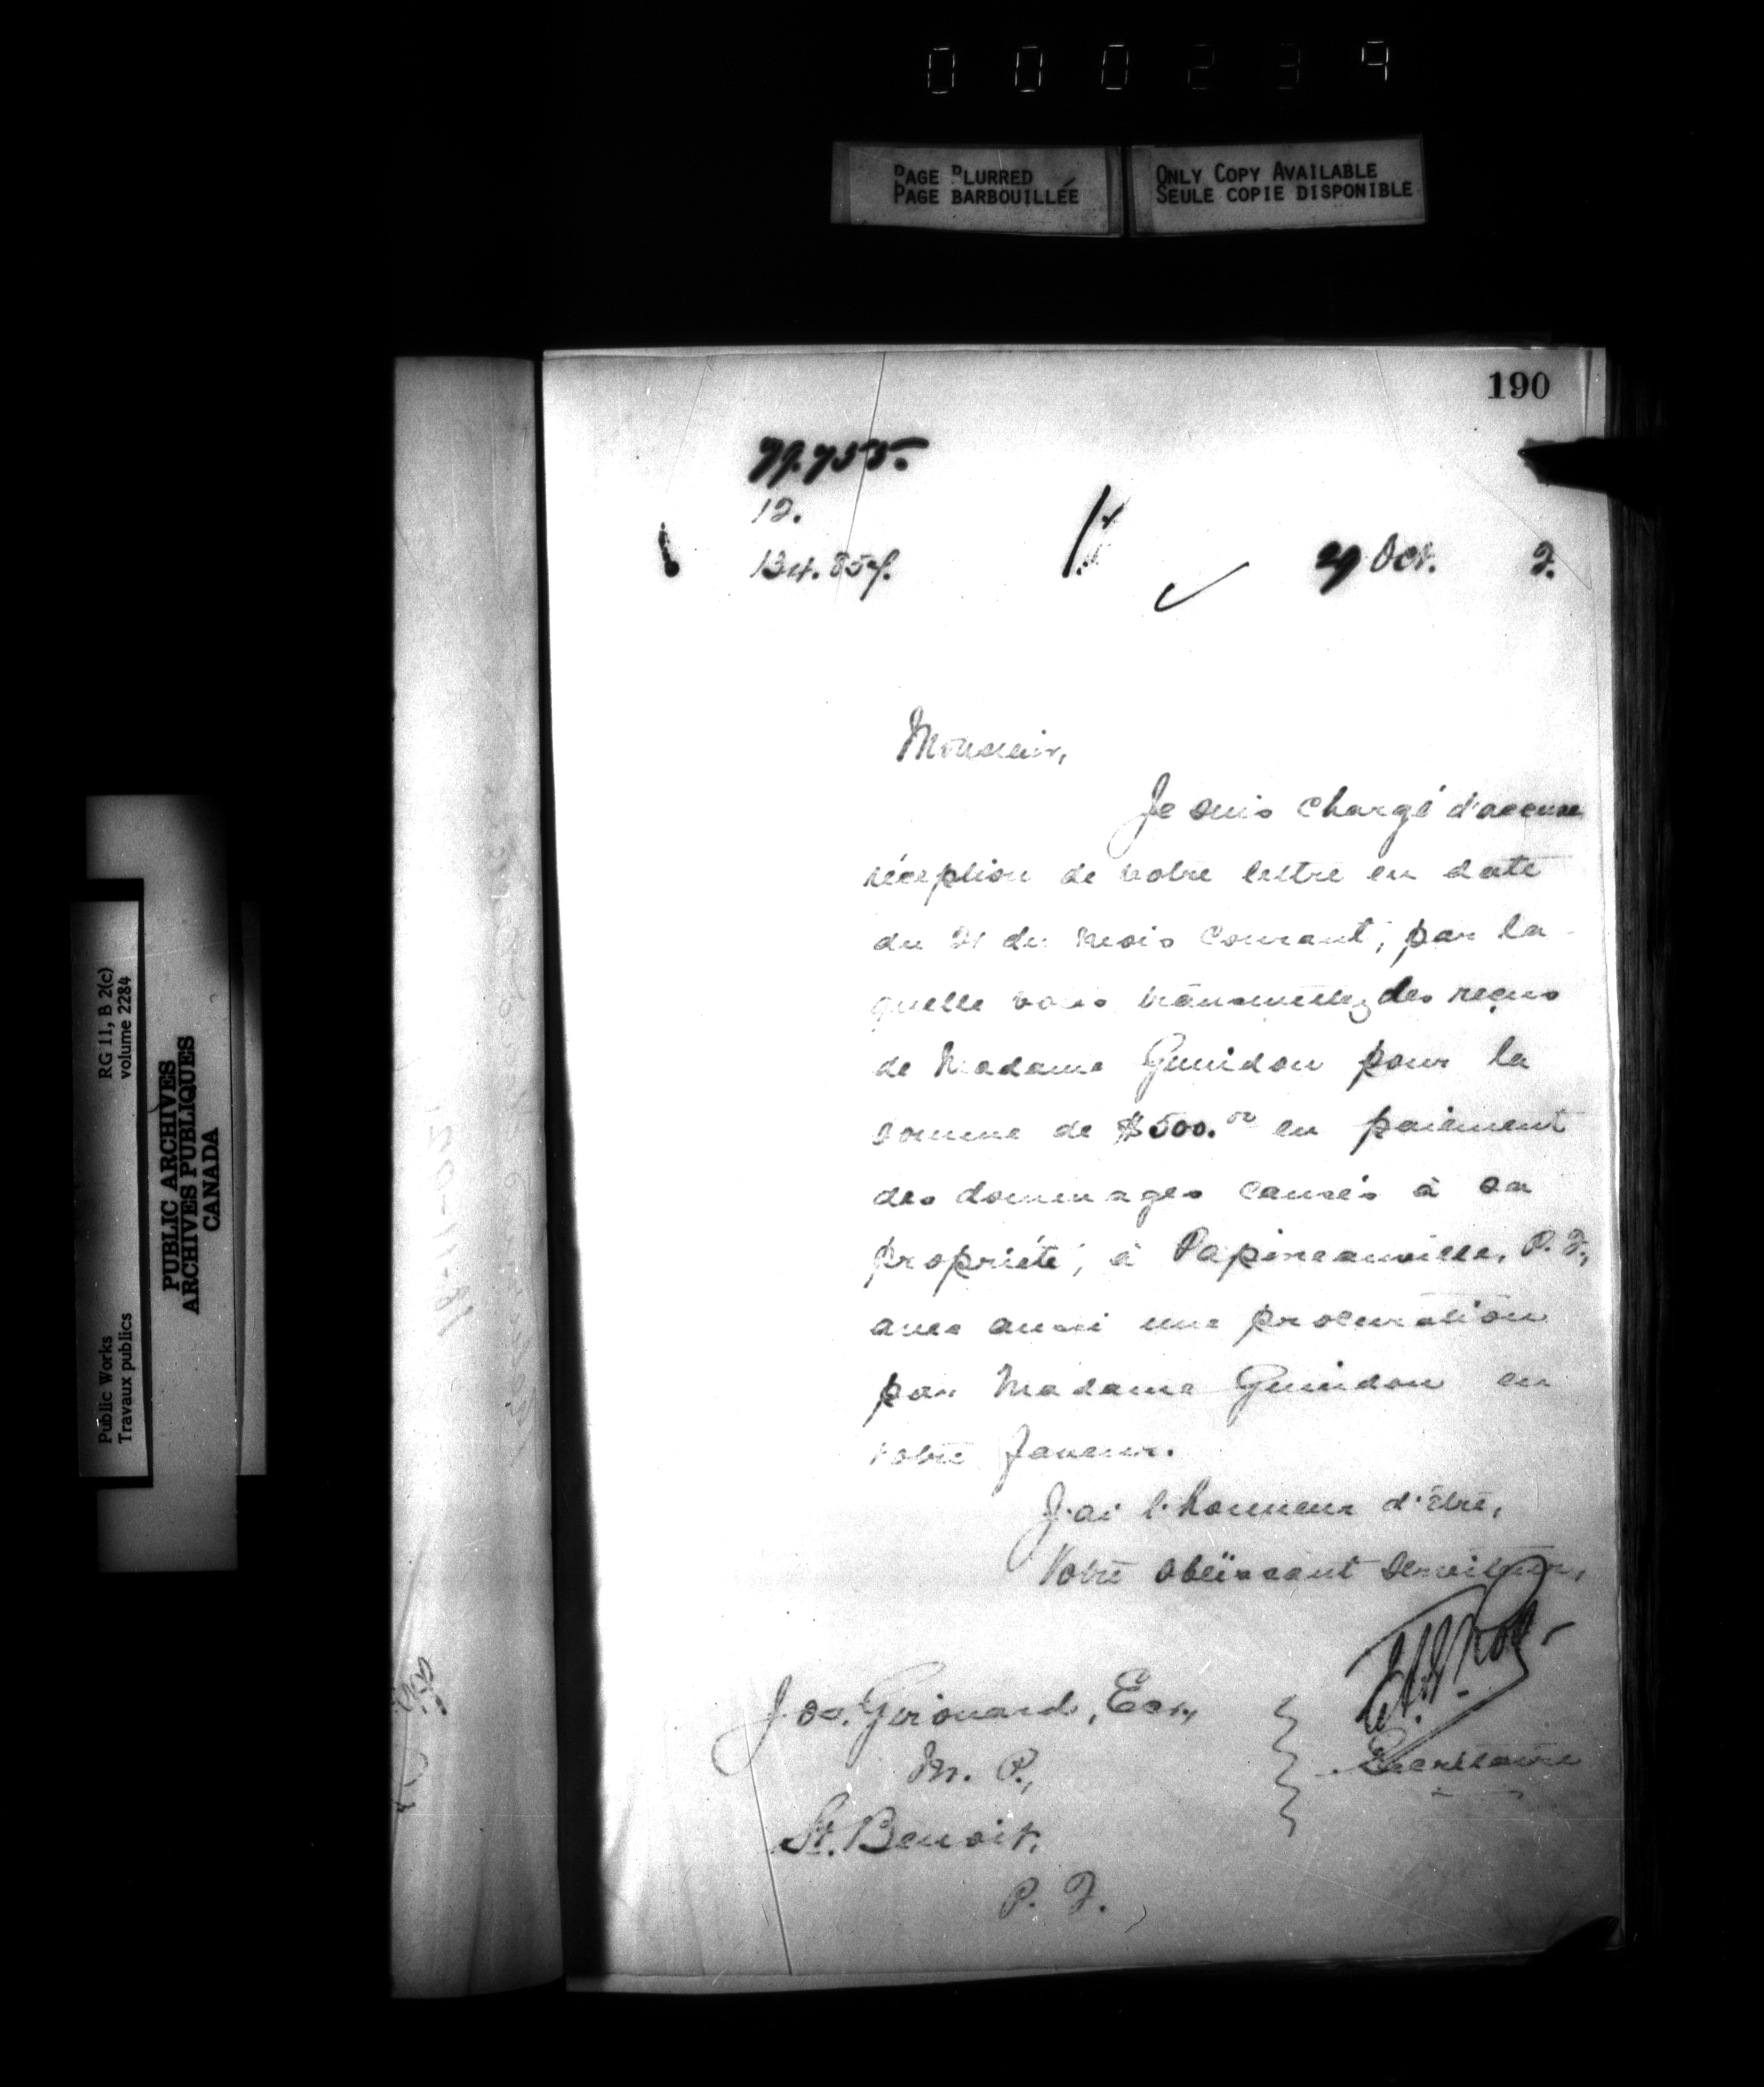 000239
PAGE BLURRED
PAGE BARBOUILLÉE
ONLY COPY AVAILABLE
SEULE COPIE DISPONIBLE
Public Works
Travaux publics
RG 11, B 2(c)
volume 2284
PUBLIC ARCHIVES
ARCHIVES PUBLIQUES
CANADA
190
12.
29 Oct. 2.
Monsieur,
Je suis chargé d'accuse
réception de votre lettre en date
du 21 du mois courant, par la
quelle vous transmettez des reçus
de Madame Guindon pour la
somme de $500.00 en paiement
des dommages causés à sa
propriété, à Papineauville, P. Q.,
avec aussi une procuration
par Madame Guindon en
votre faveur.
J'ai l'honneur d'être,
Votre obéissant serviteur,
Jos. Girouard, Ecr.,
M. P.,
Secrétaire
St. Benoit,
P. Q.